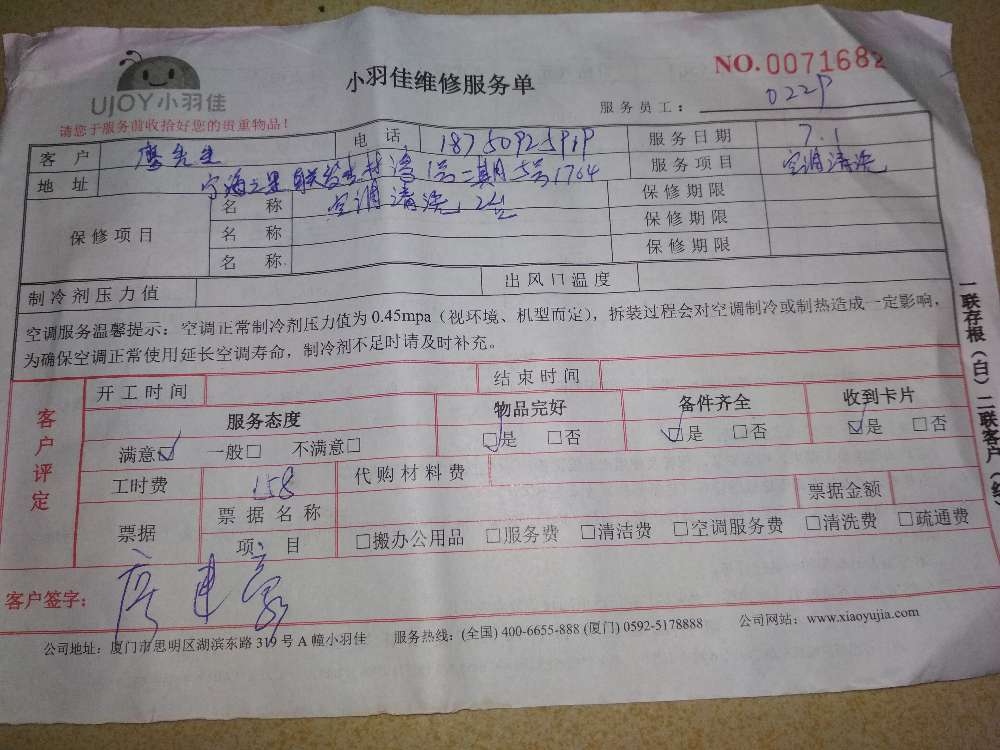 UJOY小羽佳
小羽佳维修服务单
NO.0071682
请您于服务前收拾好您的贵重物品！
服务员工：022P
客户 廖先生 电话 服务日期 7.1
地址 宁海之星 1号二期5号1704 服务项目 空调清洗
保修项目 名称 空调清洗 2台 保修期限
名称 保修期限
名称 保修期限
制冷剂压力值 出风口温度
空调服务温馨提示：空调正常制冷剂压力值为0.45mpa（视环境、机型而定），拆装过程会对空调制冷或制热造成一定影响，
为确保空调正常使用延长空调寿命，制冷剂不足时请及时补充。
客户评定
开工时间 结束时间
服务态度 物品完好 备件齐全 收到卡片
满意☑ 一般□ 不满意□ ☑是 □否 ☑是 □否 ☑是 □否
工时费 158 代购材料费
票据 票据名称 票据金额
项目 □搬办公用品 □服务费 □清洁费 □空调服务费 □清洗费 □疏通费
客户签字：
公司地址：厦门市思明区湖滨东路319号A幢小羽佳 服务热线：(全国) 400-6655-888 (厦门) 0592-5178888 公司网站：www.xiaoyujia.com
一联存根（白）二联客户（红